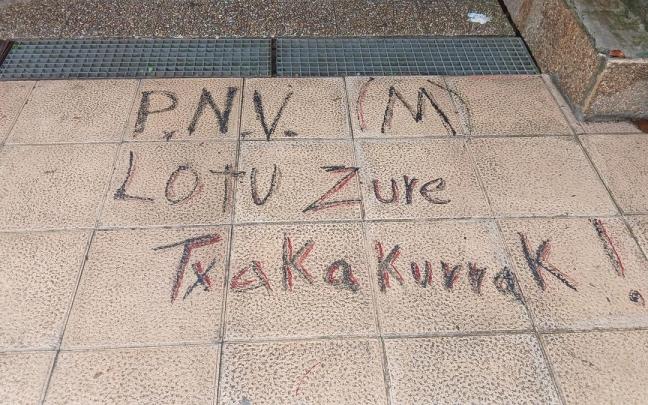 P.N.V. (M)
LOTU Zure
TxaKaKurraK!